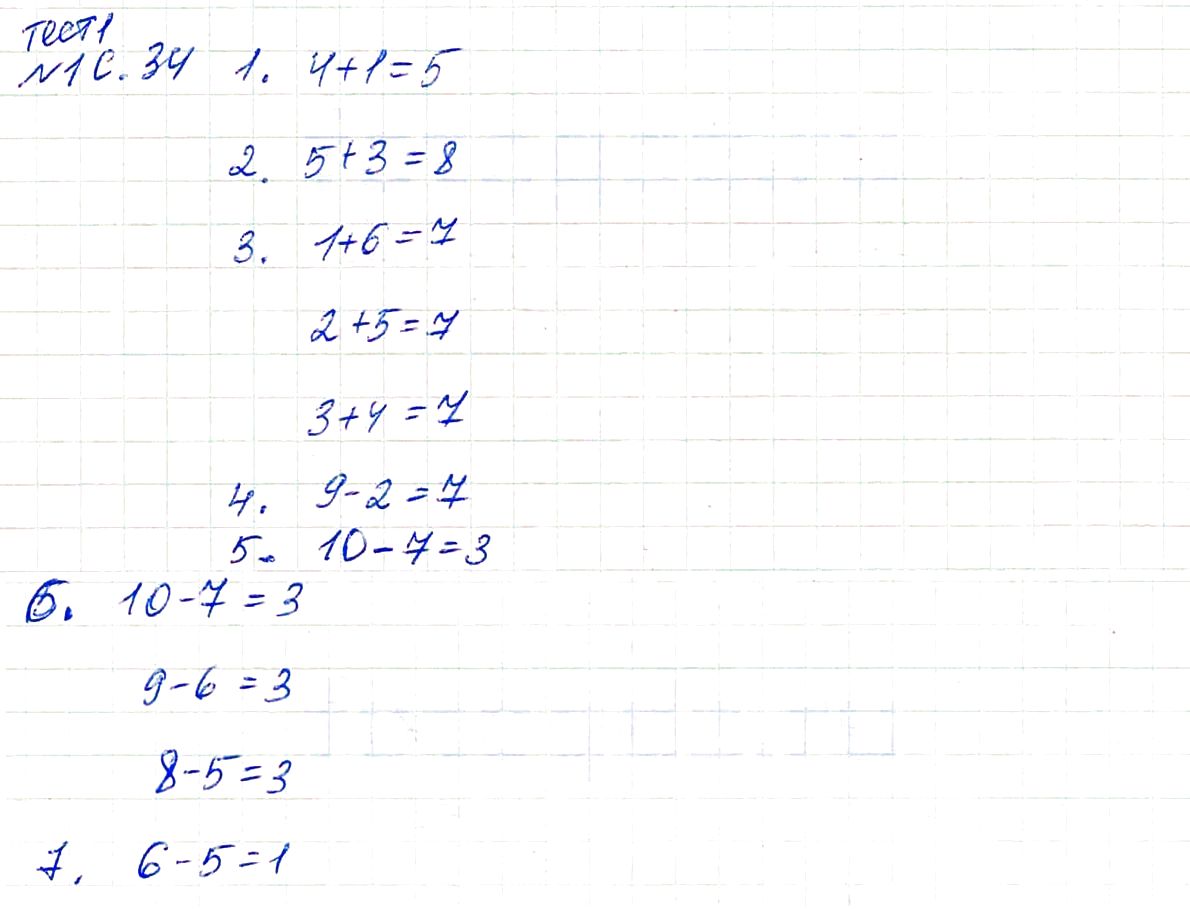 тест 1
№1 с. 34 1. 4+1=5
2. 5+3=8
3. 1+6=7
2+5=7
3+4=7
4. 9-2=7
5. 10-7=3
6. 10-7=3
9-6=3
8-5=3
7. 6-5=1